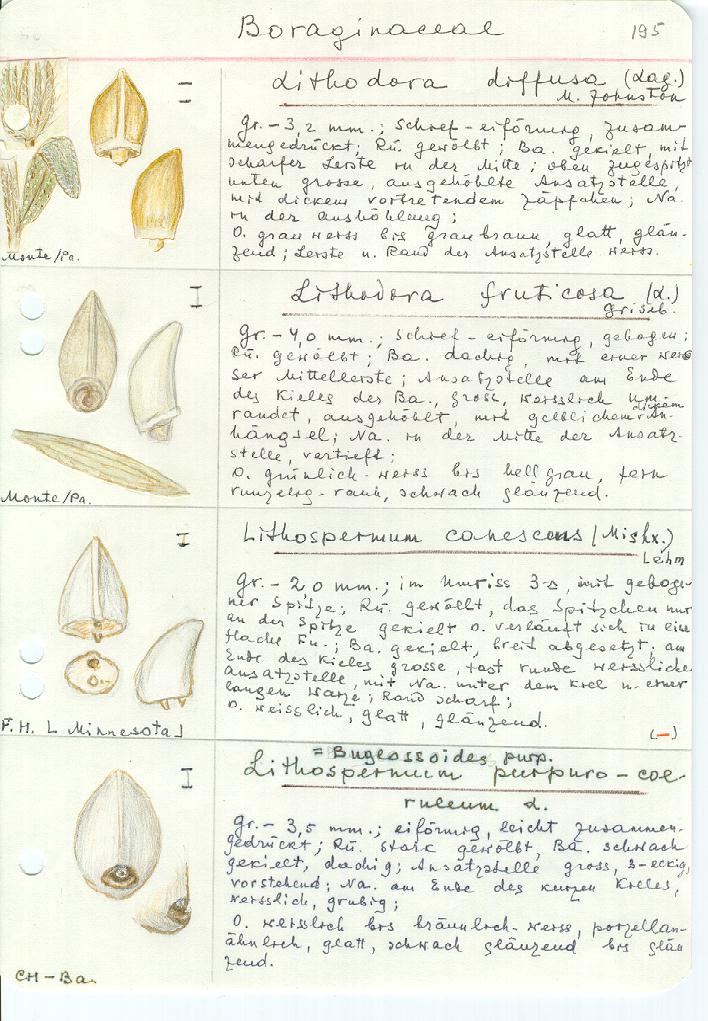 Boraginaceae 195
Lithodora diffusa (Lag.)
M. Johnston
Gr.- 3,2 mm.; Schief-eiförmig, zusam-
mengedrückt; Rü. gewölbt; Ba. gekielt, mit
scharfer Leiste in der Mitte; oben zugespitzt
unten grosse, ausgehöhlte Ansatzstelle,
mit dickem vortretendem Zäpfchen; Na.
in der Aushöhlung;
O. grauweiss bis graubraun, glatt, glän-
zend; Leiste u. Rand der Ansatzstelle weiss.
Monte/Pa.
Lithodora fruticosa (L.)
Griseb.
Gr.- 4,0 mm.; Schief-eiförmig, gebogen;
Rü. gewölbt; Ba. dachig, mit einer weis-
ser Mittelleiste; Ansatzstelle am Ende
des Kieles der Ba., gross, weisslich um-
randet, ausgehöhlt, mit gelblichem dickem An-
hängsel; Na. in der Mitte der Ansatz-
stelle, vertieft;
O. grünlich-weiss bis hellgrau, fein
runzelig-rauh, schwach glänzend.
Monte/Pa.
Lithospermum canescens (Mishx.)
Lehm
Gr.- 2,0 mm.; im Umriss 3-s, mit geboge-
ner Spitze; Rü. gewölbt, das Spitzchen nur
an der Spitze gekielt o. verläuft sich in eine
flache Fu.; Ba. gekielt, breit abgesetzt; am
Ende des Kieles grosse, fast runde weissliche
Ansatzstelle, mit Na. unter dem Kiel u. einer
langen Warze; Rand scharf;
O. weisslich, glatt, glänzend.
F.H. L Minnesota] (-)
= Buglossoides purp.
Lithospermum purpuro-coe-
ruleum L.
Gr.- 3,5 mm.; eiförmig, leicht zusammen-
gedrückt; Rü. stark gewölbt, Ba. schwach
gekielt, dachig; Ansatzstelle gross, 3-eckig,
vorstehend; Na. am Ende des kurzen Kieles,
weisslich, grubig;
O. weisslich bis bräunlich-weiss, porzellan-
ähnlich, glatt, schwach glänzend bis glän
zend.
CH-Ba.